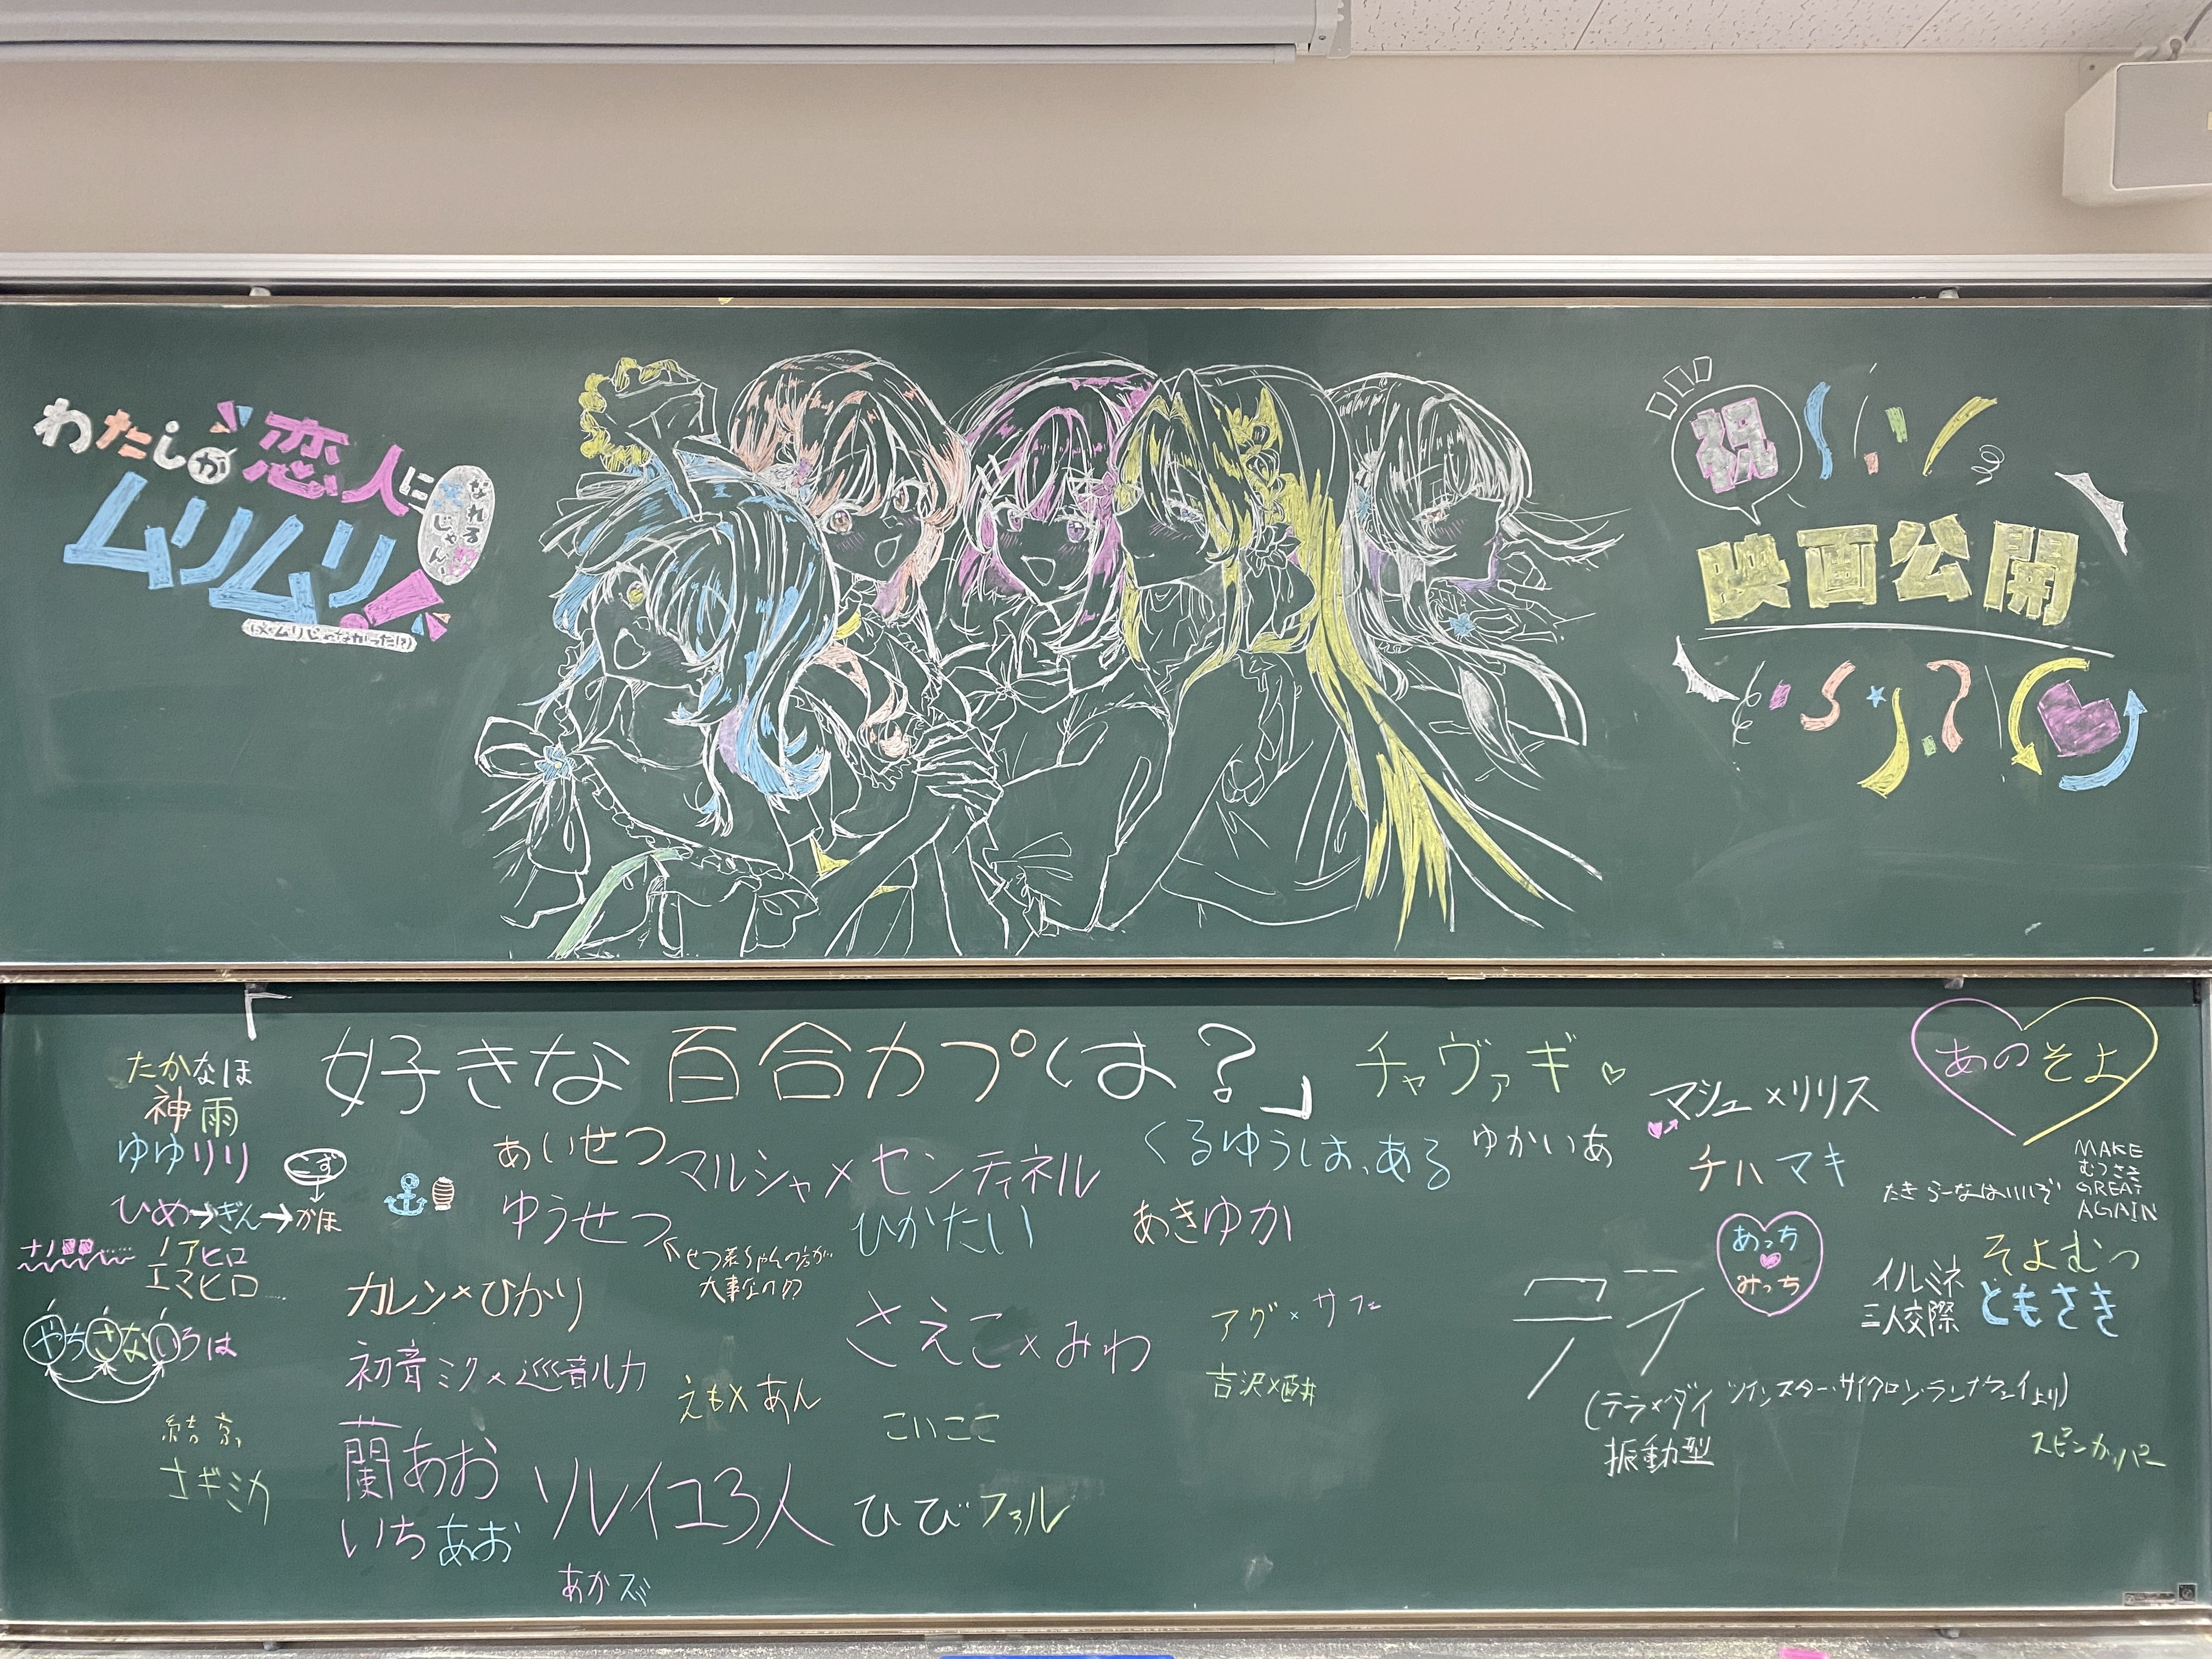 わたしが恋人に
なれるじゃん、
ムリムリ
(※ムリじゃなかった!?)
祝
映画公開
「好きな百合カプは?」
チャヴァギ♡
あのそよ
たかなほ
神雨
ゆゆリリ
こず
ひめ→ぎん→かほ
ノアヒロ
エマヒロ
やちさないろは
結京
さギミカ
あいせつ
ゆうせつ
せつ菜ちゃんの方が
大事なの??
マルシャ×センティネル
ひかたい
くるゆうは、ある
ゆかいあ
あきゆか
マシュ×リリス
チハマキ
MAKE
むつさき
GREAT
AGAIN
たきらーなはいいぞ
カレン×ひかり
初音ミク×巡音ルカ
えも×あん
さえこ×みわ
こいここ
アグ×サフィ
吉沢×酉井
蘭あお
いちあお
ソレイユ3人
ひびファル
あかズバ
あっち
みっち
イルミネ
三人交際
そよむつ
ともさき
(テラ×ダイ ツインスター・サイクロン・ランナウェイより)
振動型
スピンカッパー